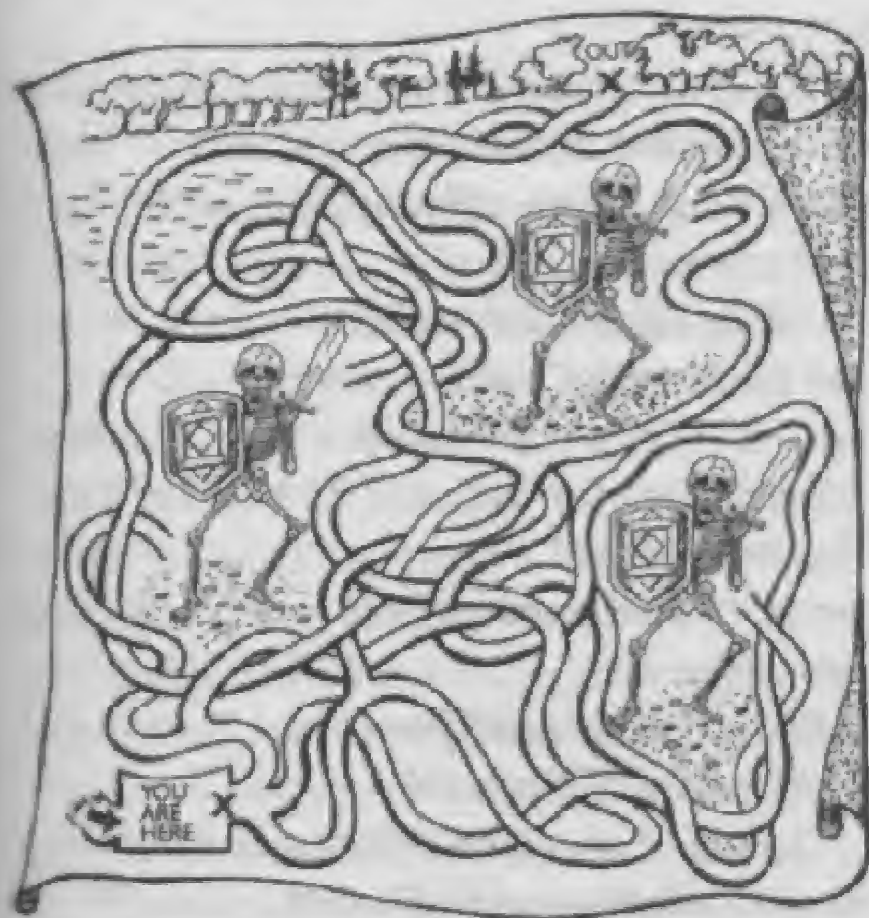 OUT
X
YOU
ARE
HERE
X